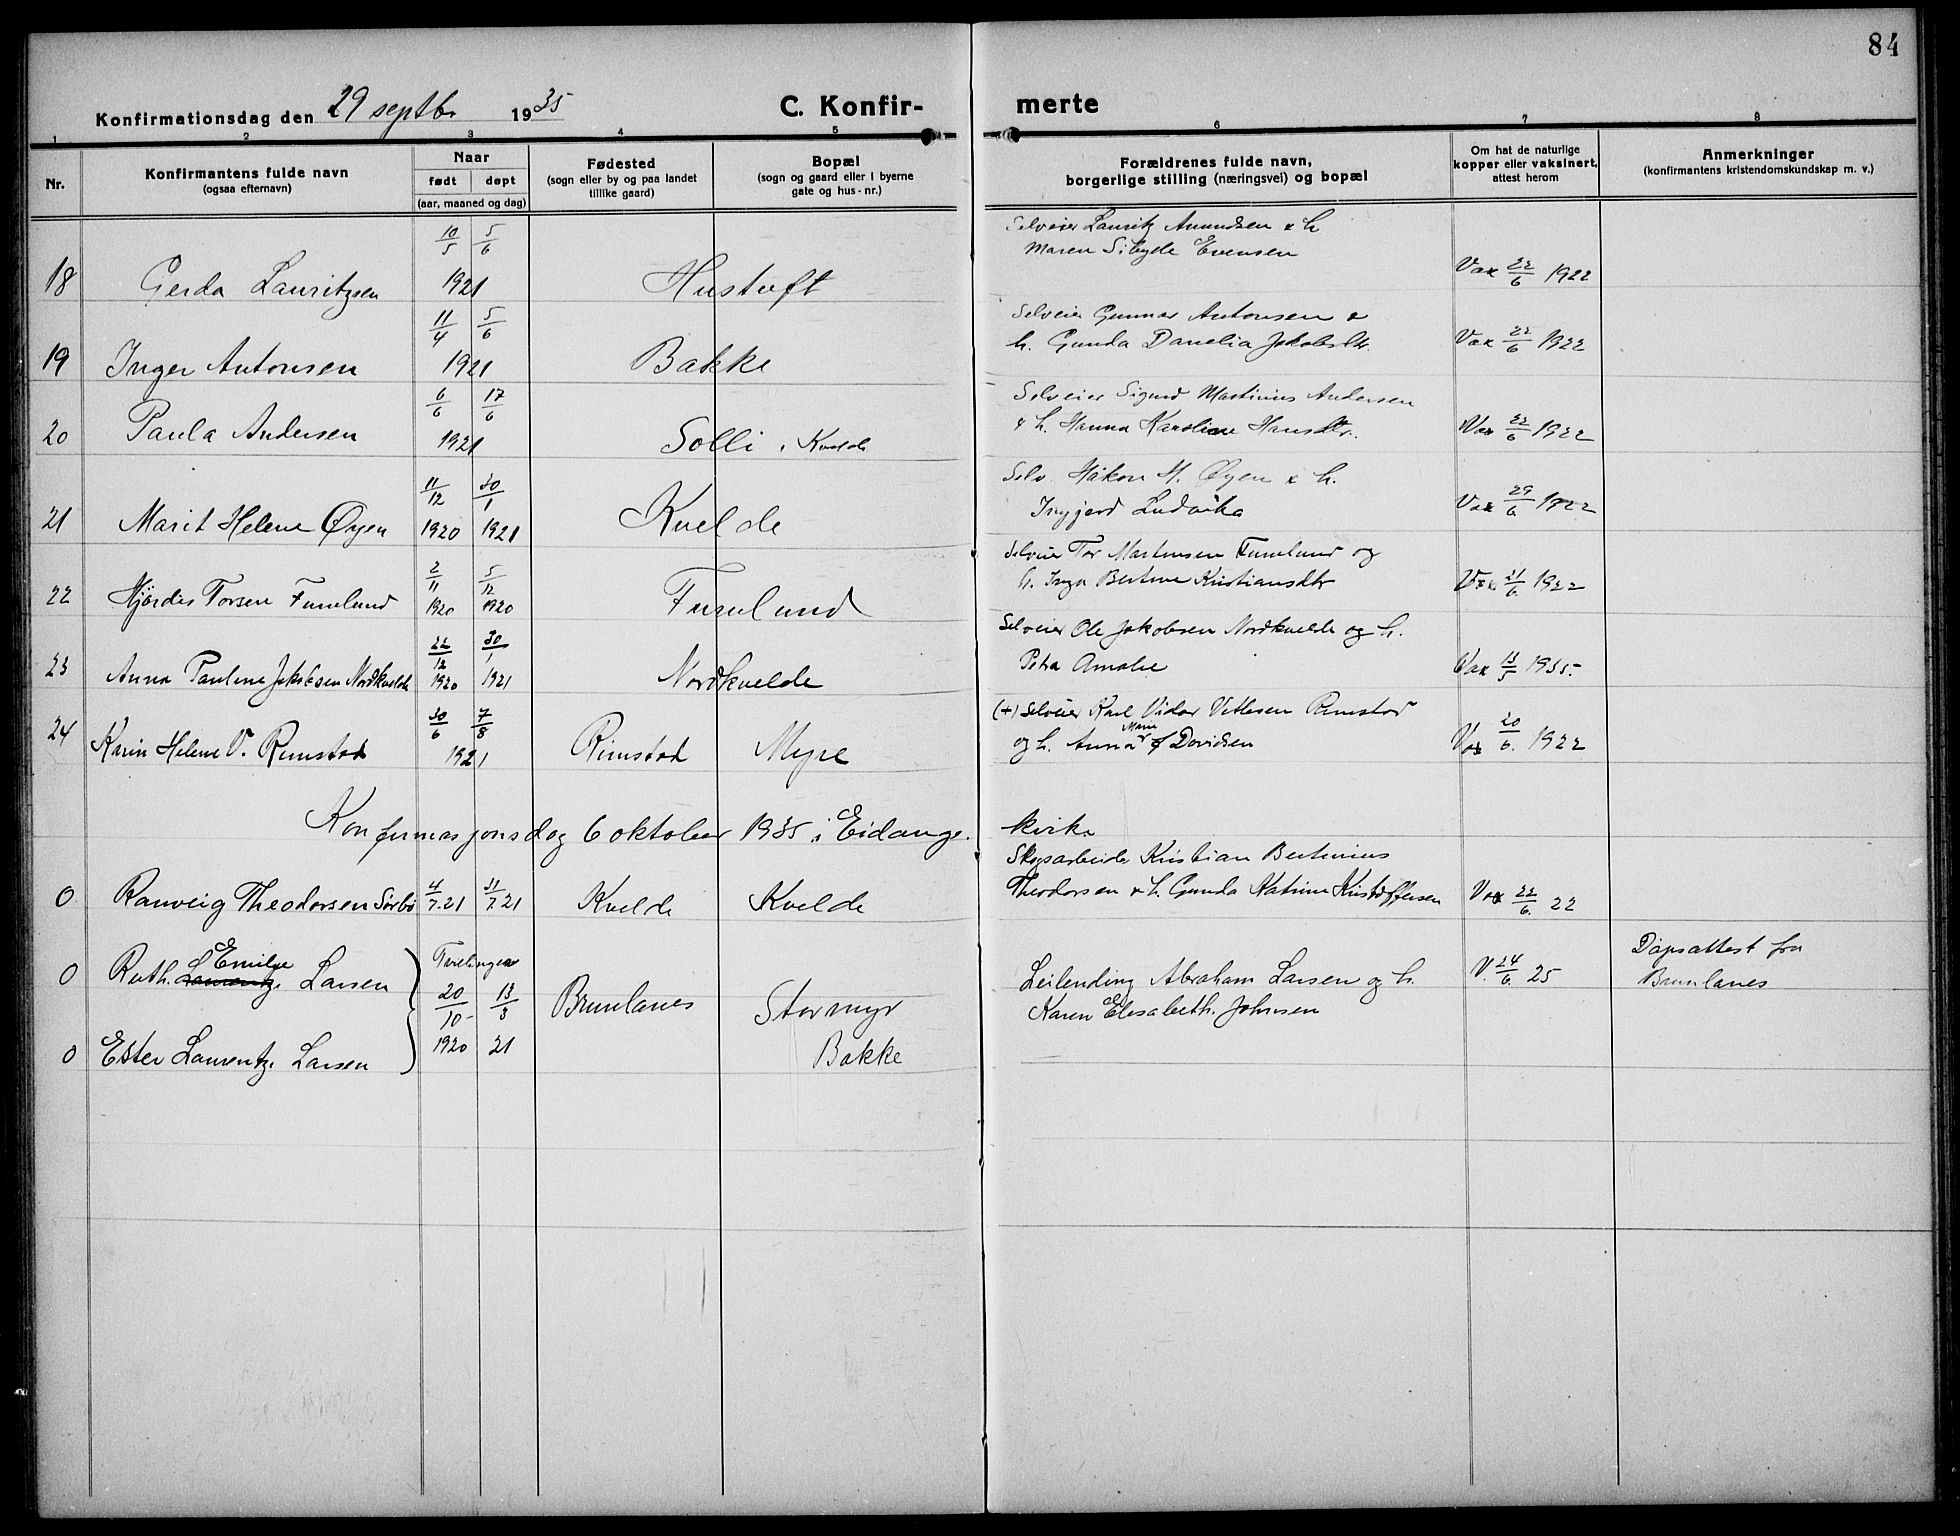 84
Konfirmationsdag den 29 septbr 1935 C. Konfir- merte
1 2 3 4 5 6 7 8
Nr. Konfirmantens fulde navn (ogsaa efternavn) Naar født døpt (aar, maaned og dag) Fødested (sogn eller by og paa landet tillike gaard) Bopæl (sogn og gaard eller i byerne gate og hus-nr.) Forældrenes fulde navn, borgerlige stilling (næringsvei) og bopæl Om hat de naturlige kopper eller vaksinert, attest herom Anmerkninger (konfirmantens kristendomskundskap m. v.)
Selveier Lauritz Amundsen & h
10/5 5/6 Maren Sibyde Evensen
18 Gerda Lauritzsen 1921 Hustuft Vax 22/6 1922
11/4 5/6 Selveier Gunnar Antonsen &
19 Inger Antonsen 1921 Bakke h. Gunda Danelia Jakobsdtr. Vax 22/6 1922
6/6 17/6 Selveier Sigurd Martinius Andersen
20 Paula Andersen 1921 Solli, Kvelde & h. Hanna Karoline Hansdtr. Vax 22/6 1922
11/12 30/1 Selv. Håkon M. Øyen & h.
21 Marit Helene Øyen 1920 1921 Kvelde Ingjerd Ludvika Vax 29/6 1922
2/11 5/12 Selveier Tor Martinsen Furulund og
22 Hjördis Torsen Furulund 1920 1920 Furulund h. Inga Bertine Kristiansdtr Vax 21/6. 1922
22/12 30/1 Selveier Ole Jakobsen Nordkvelde og h.
23 Anna Pauline Jakobsen Nordkvelde 1920 1921 Nordkvelde Petra Amalie Vax 13/5 1935.
30/6 7/8 (+) Selveier Karl Vidar Vetlesen Rimstad
24 Karin Helene V. Rimstad 1921 Rimstad Myre og h. Anna Marie Davidsen Vax 20/6. 1922
Konfirmasjonsdag 6 oktober 1935 i Eidange. kirke
Skogsarbeider Kristian Bertinius
0 Ranveig Theodorsen Sørbø 4/7.21 31/7.21 Kvelde Kvelde Theodorsen & h. Gunda Katrine Kristoffersen Vax 22/6. 22
0 Ruth. Emilie Larsen Tvillinger 20/10- 13/3 Brunlanes Stormyr Leilending Abraham Larsen og h. V. 24/6. 25 Dåpsattest fra Brunlanes
Karen Elisabeth. Johnsen
0 Ester Laurentze. Larsen 1920 21 Bakke